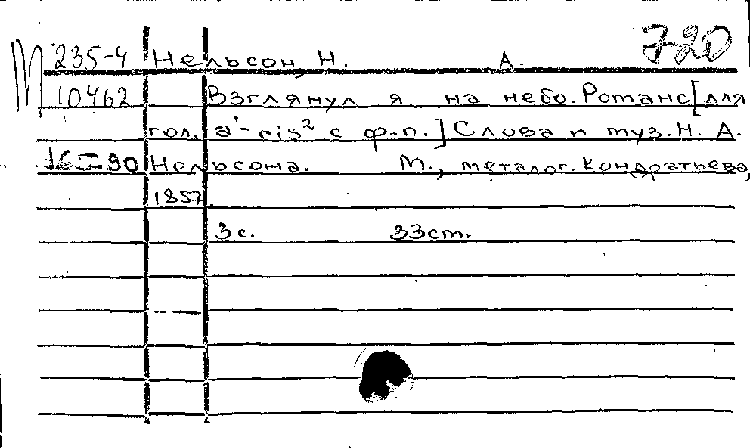 720
235-4 Нельсон, Н. А.
М 10462 Взглянул я на небо. Романс [для
гол. a¹-cis² с ф-п.] Слова и муз. Н. А.
16-I-90 Нельсона. М., металог. Кондратьева,
1857.
3с. 33ст.